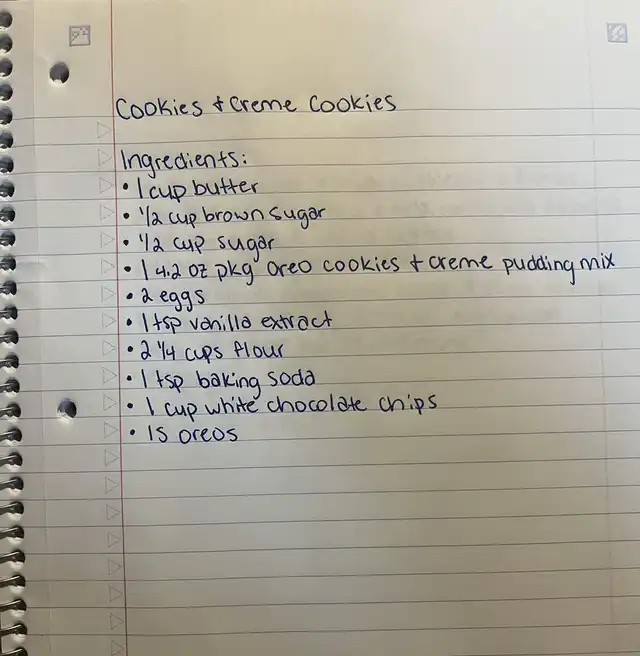 Cookies + Creme Cookies
Ingredients:
• 1 cup butter
• 1/2 cup brown sugar
• 1/2 cup sugar
• 1 4.2 oz pkg oreo cookies + creme pudding mix
• 2 eggs
• 1 tsp vanilla extract
• 2 1/4 cups flour
• 1 tsp baking soda
• 1 cup white chocolate chips
• 15 oreos